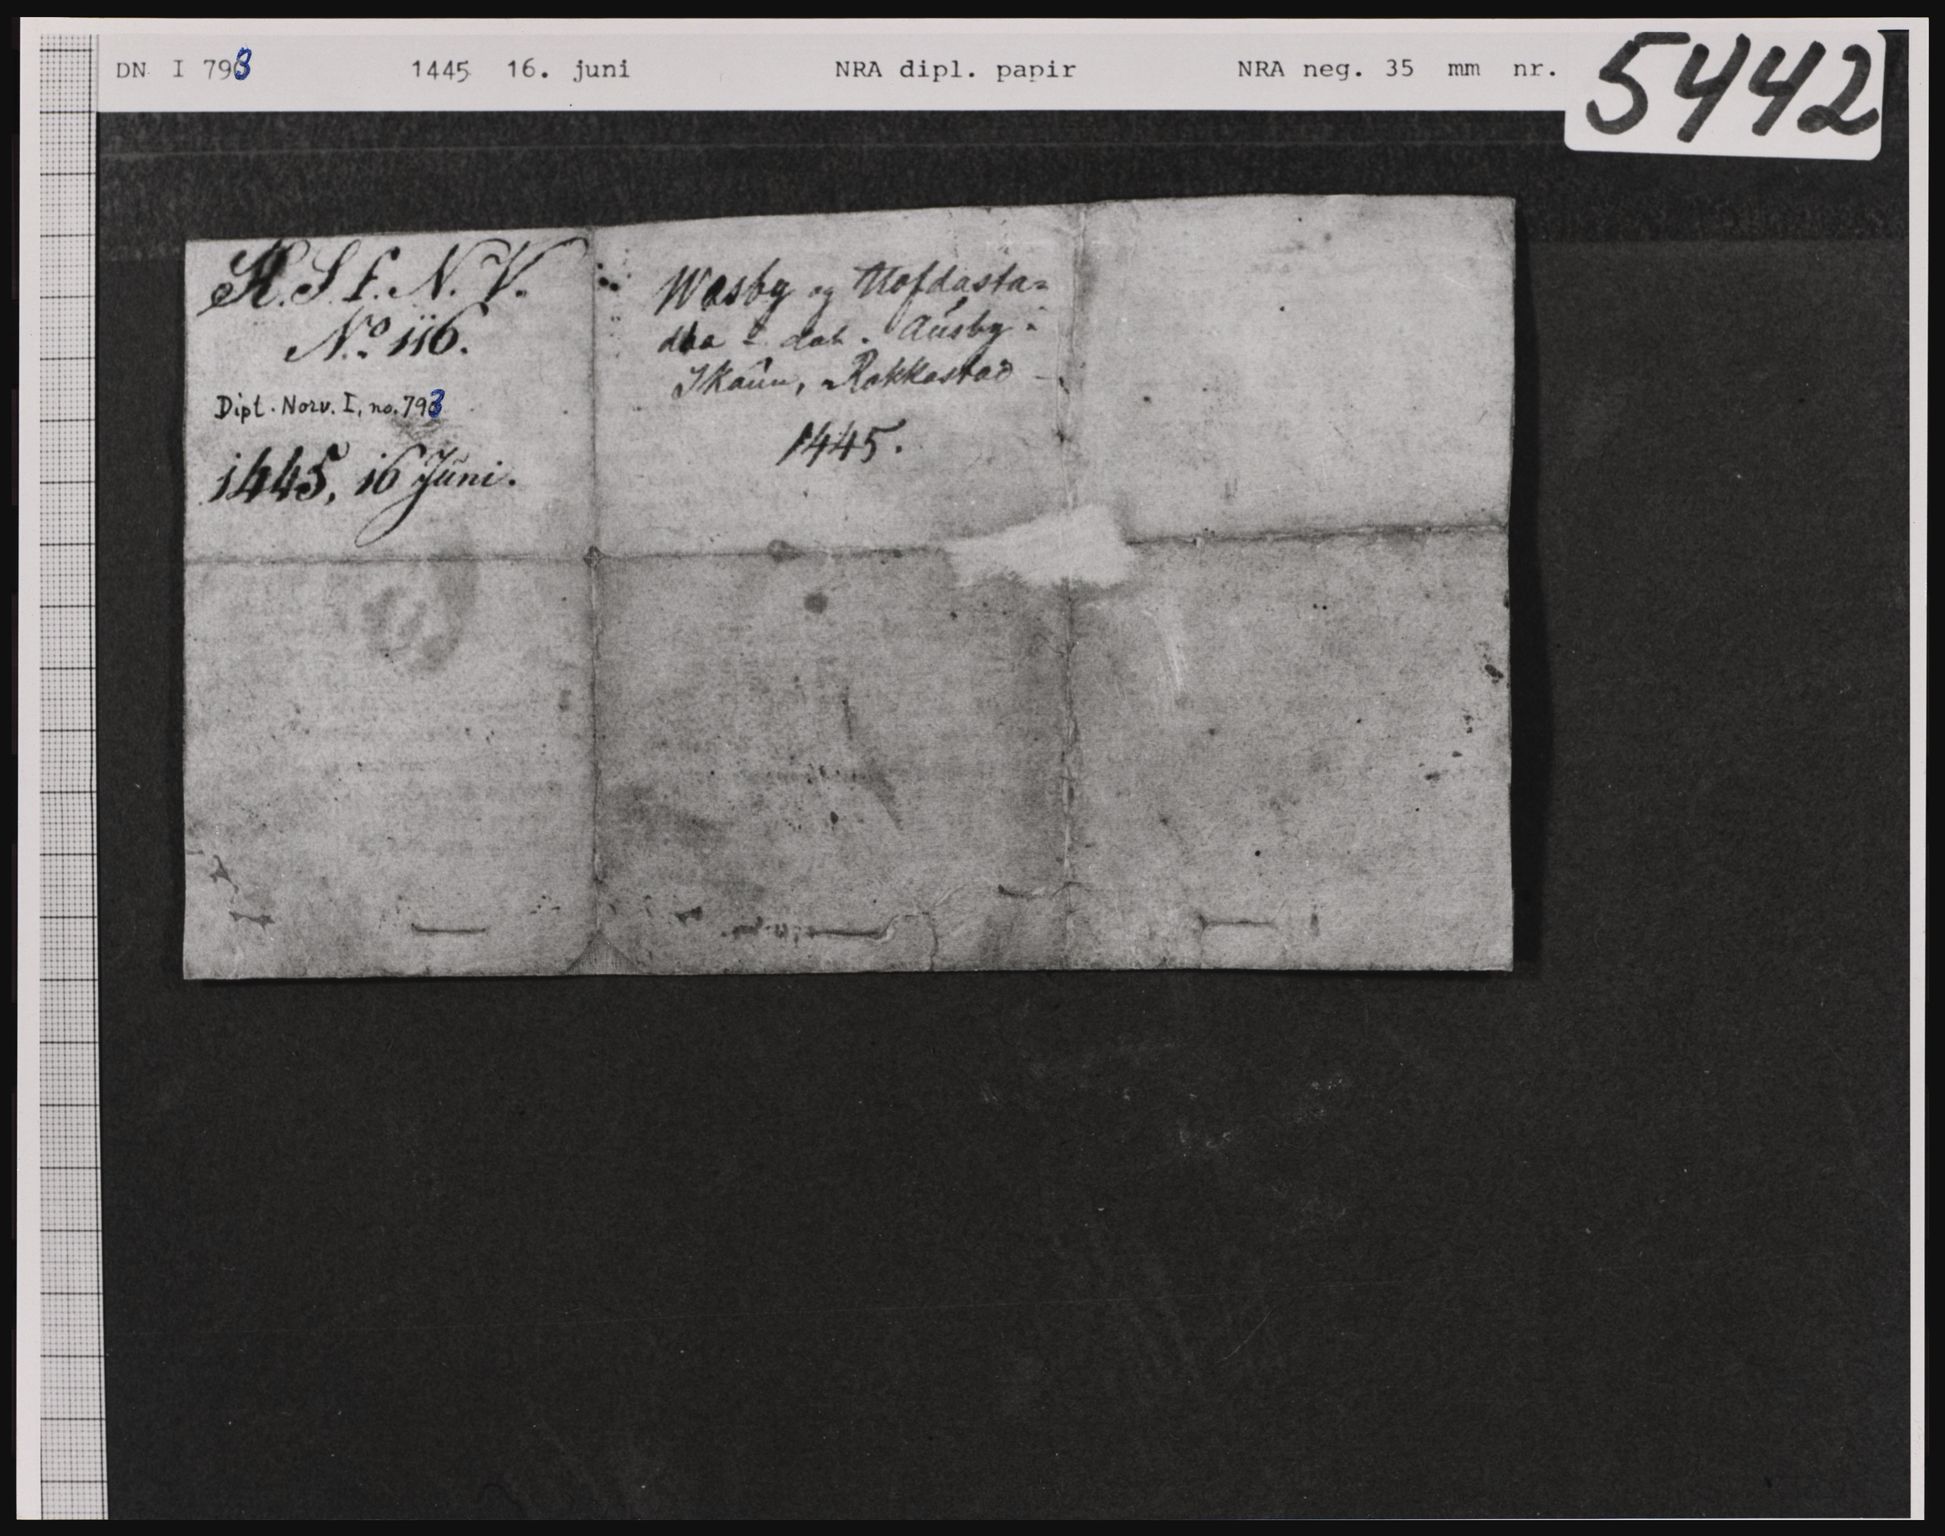 DN I 793 1445 16. juni NRA dipl. papir NRA neg. 35 mm nr. 5442
K.S.f.N.V.
No. 116.
Dipl. Norv. I, no. 793
1445, 16 Juni.
Wosby og Hofdasta-
dha dat. Ausby i
Skaun, Rakkastad
1445.